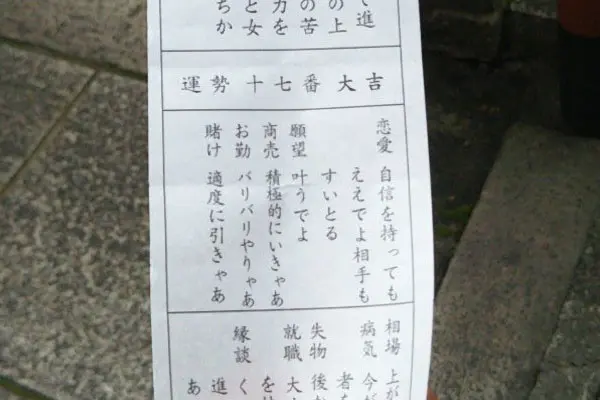 進
の上
の苦
力を
と女
ちか
運勢十七番大吉
恋愛 自信を持っても
ええでよ相手も
すいとる
願望 叶うでよ
商売 積極的にいきゃあ
お勤 バリバリやりゃあ
賭け 適度に引きゃあ
相場 上が
病気 今
者を
失物 後
就職 大
を
縁談 く
進
あ